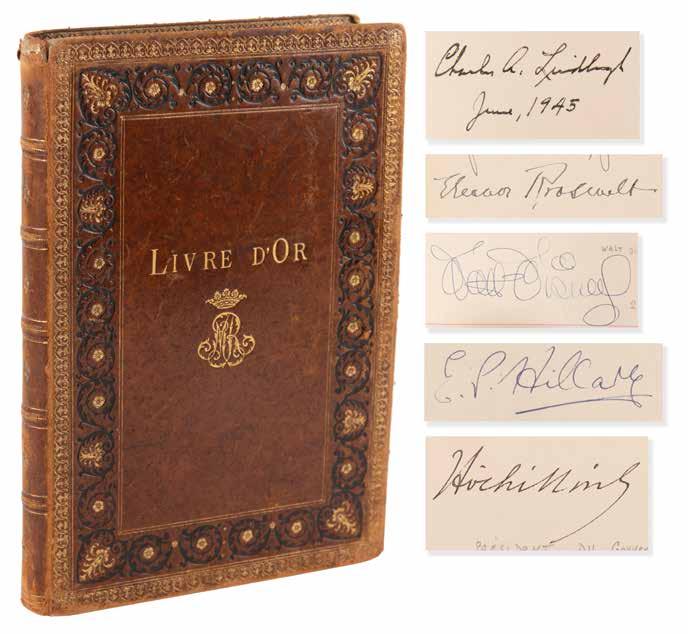 LIVRE D'OR
Charles A. Lindbergh
June, 1945
Eleanor Roosevelt
WALT
Walt Disney
2
E. P. Hillary
Hochiminh
PRÉSIDENT DU